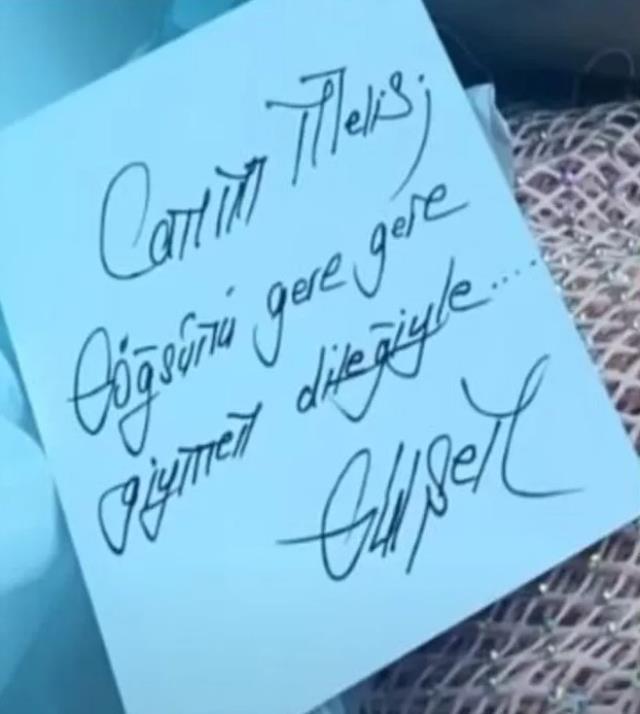 Canım Melis,
Göğsünü gere gere
giymen dileğiyle....
Gülşen